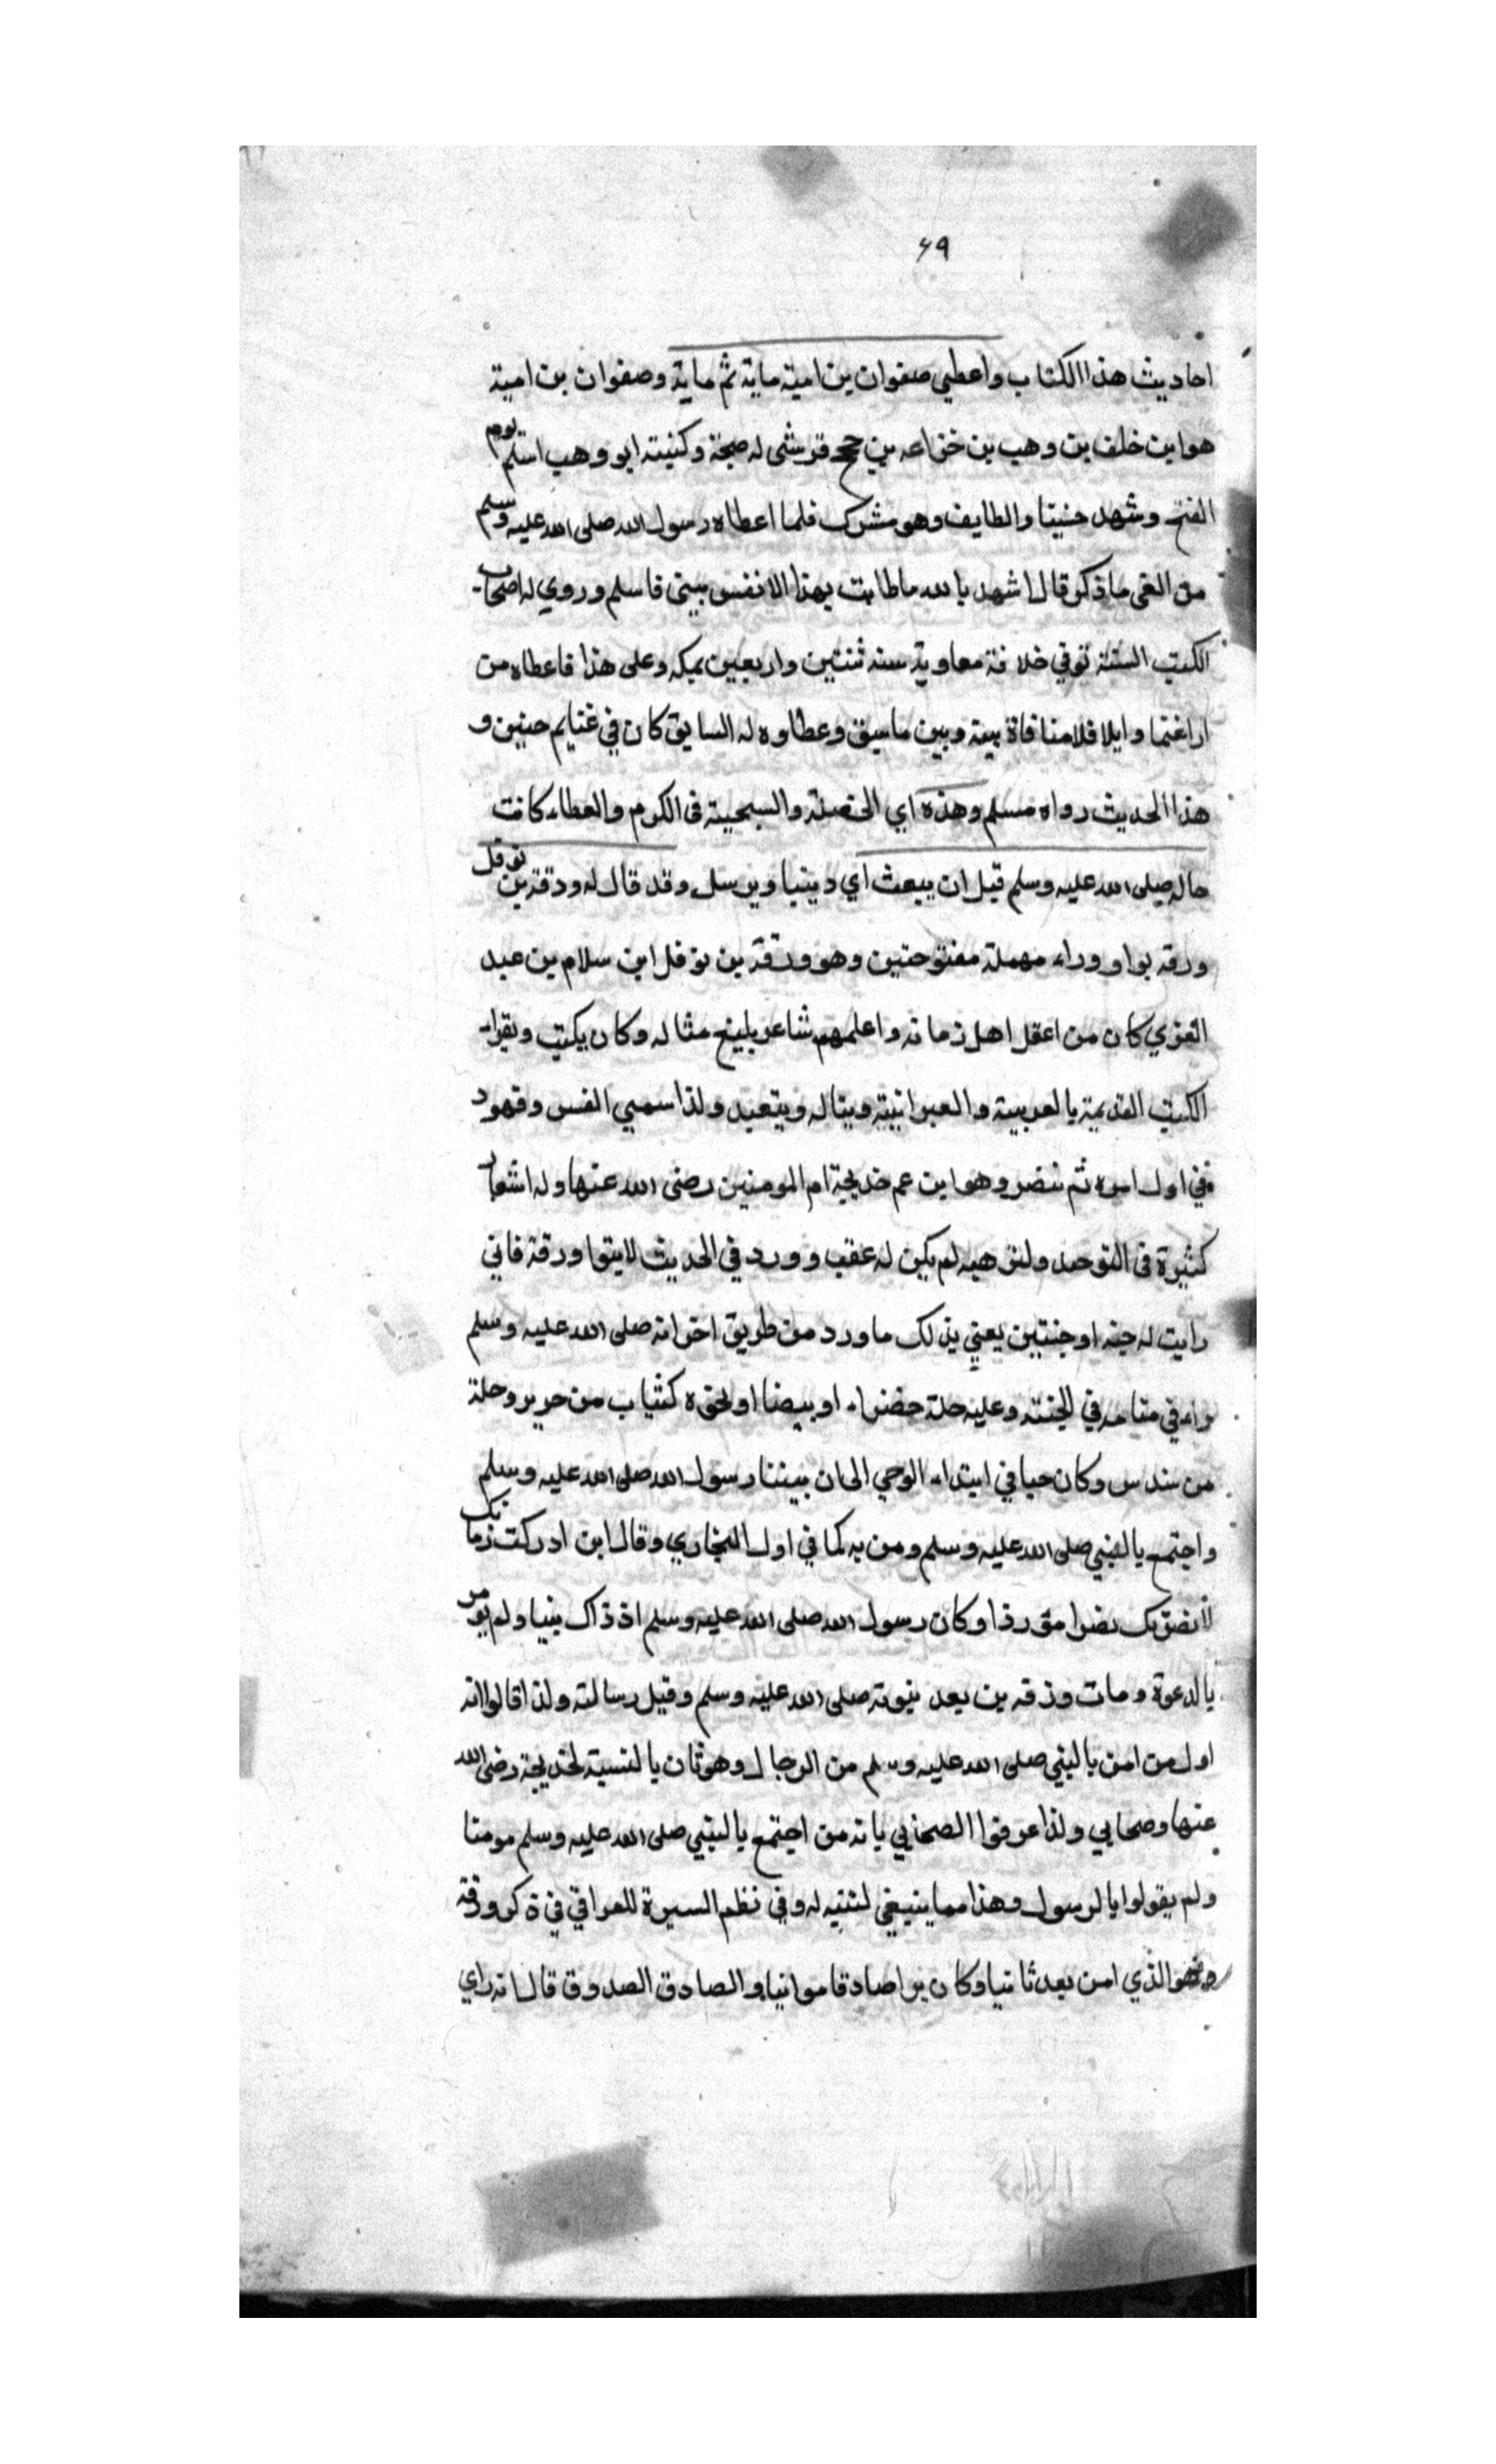 ٦٩
احاديث هذا الكتاب واعطي صفوان بن امية ماية ثم ماية وصفوان بن امية
هو ابن خلف بن وهب بن خزاعه بن جمح قرشى له صحبة وكنيته ابو وهب اسلم يوم
الفتح وشهد حنينا والطايف وهو مشرك فلما اعطاه رسول الله صلى الله عليه وسلم
من الفى ما ذكر قال اشهد بالله ما طابت بهذا الا نفس بنى فاسلم وروي له اصحاب
الكتب الستة توفي خلافة معاوية سنه ثنتين واربعين بمكه وعلى هذا فاعطاه من
اراغنما وابلا فلا منافاة بينه وبين ما سبق وعطاوه له السابق كان في غنايم حنين و
هذا الحديث رواه مسلم وهذه اي الخصلة والسجية فى الكرم والعطاء كانت
حاله صلى الله عليه وسلم قبل ان يبعث اي دينبا ويرسل وقد قال له ورقة بن نوفل
ورقه بواو وراء مهملة مفتوحتين وهو ورقة بن نوفل ابن سلام بن عبد
العزي كان من اعقل اهل زمانه واعلمهم شاعر بليغ مثاله وكان يكتب ويقرا
الكتب القديمة بالعربية والعبرانية ويتاله ويتعبد ولذا سمي القس وقهود
في اول امره ثم تنضر وهو ابن عم خديجة ام المومنين رضى الله عنها وله اشعار
كثيرة فى التوحد لم يكن له عقب وورد في الحديث لا ورقة فاني
رايت له جنه او جنتين يعني بذلك ما ورد من طريق اخرانه صلى الله عليه وسلم
راه في منامه في الجنته وعليه حلة خضراء او بيضا او لحقه كثياب من حرير وحلة
من سندس وكان حيا في ابتداء الوحي الى ان نبينا رسول الله صلى الله عليه وسلم
واجتمع بالنبي صلى الله عليه وسلم ومن به كما في اول البخاري وقال ابن ادركت زمانك
لانصرنك نصرا موزرا وكان رسول الله صلى الله عليه وسلم اذ ذاك نبيا ولم يومر
بالدعوة ومات ورقه بن بعد نبوته صلى الله عليه وسلم وقبل رسالته ولذا قالوا انه
اول من امن بالنبي صلى الله عليه وسلم من الرجال وهو ثان بالنسبة لخديجة رضى الله
عنها وصحابي ولذا عرفوا الصحابي بانه من اجتمع بالنبي صلى الله عليه وسلم مومنا
ولم يقولوا بالرسول وهذا مما ينبغي لتنبه له وفي نظم السيرة للعراقي في ذكر ورقة
وهو الذي امن بعد ثانيا وكان برا صادقا موانيا والصادق الصدوق قال انه راي